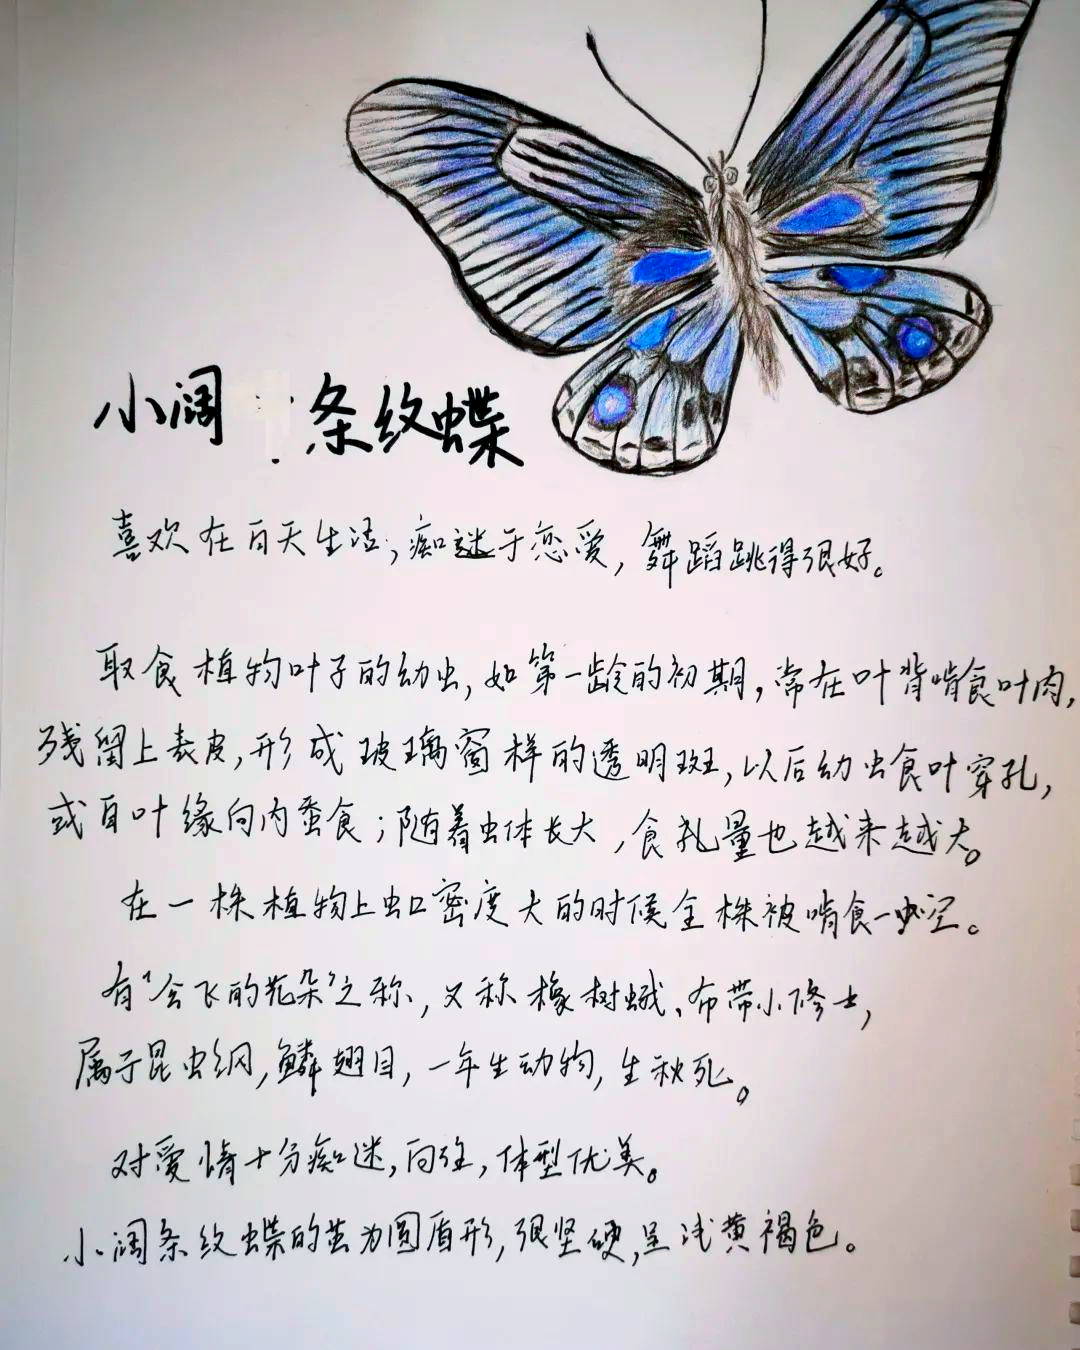 小阔条纹蝶
喜欢在白天生活,痴迷于恋爱,舞蹈跳得很好。
取食植物叶子的幼虫,如第一龄的初期,常在叶背啃食叶肉,
残留上表皮,形成玻璃窗样的透明斑,以后幼虫食叶穿孔,
或自叶缘向内蚕食;随着虫体长大,食孔量也越来越大。
在一株植物上虫口密度大的时候全株被啃食一空。
有“会飞的花朵”之称,又称橡树蛾、布带小修士,
属于昆虫纲,鳞翅目,一年生动物,生秋死。
对爱情十分痴迷,向往,体型优美。
小阔条纹蝶的茧为圆盾形,很坚硬,呈浅黄褐色。